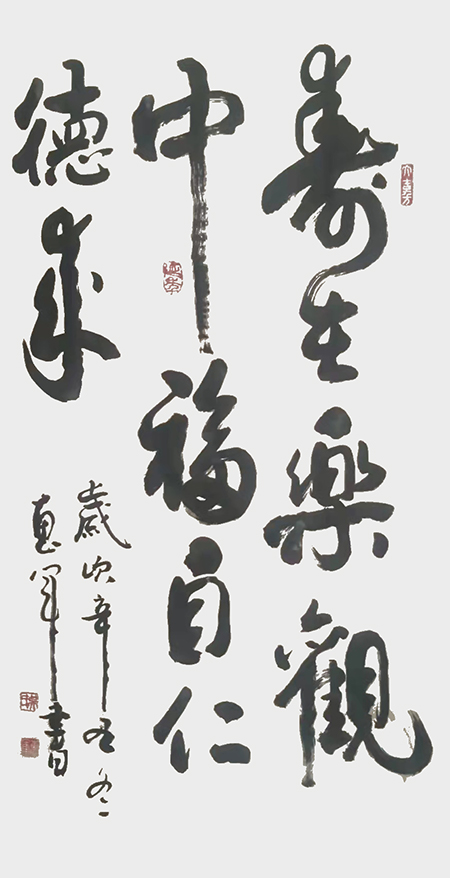 寿在樂觀
中福自仁
德来
歲次辛丑冬
惠軍書